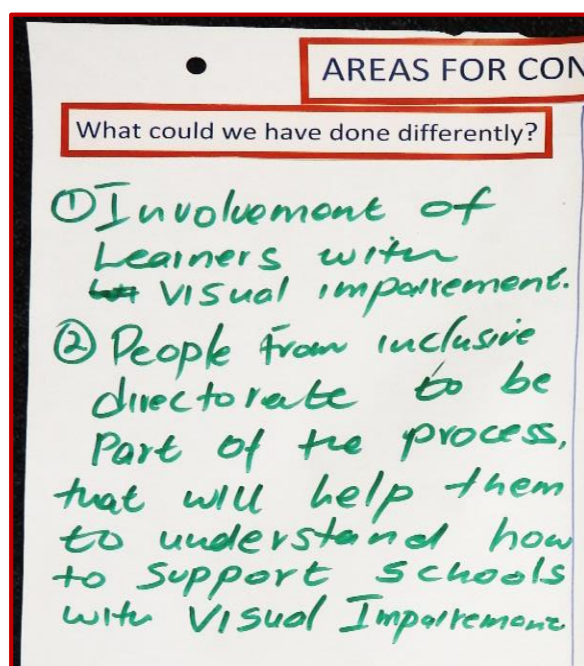 AREAS FOR CON
What could we have done differently?
① Involvement of
Learners with
Visual impairement.
② People from inclusive
directorate to be
Part of the process,
that will help them
to understand how
to support schools
with Visual Impairement